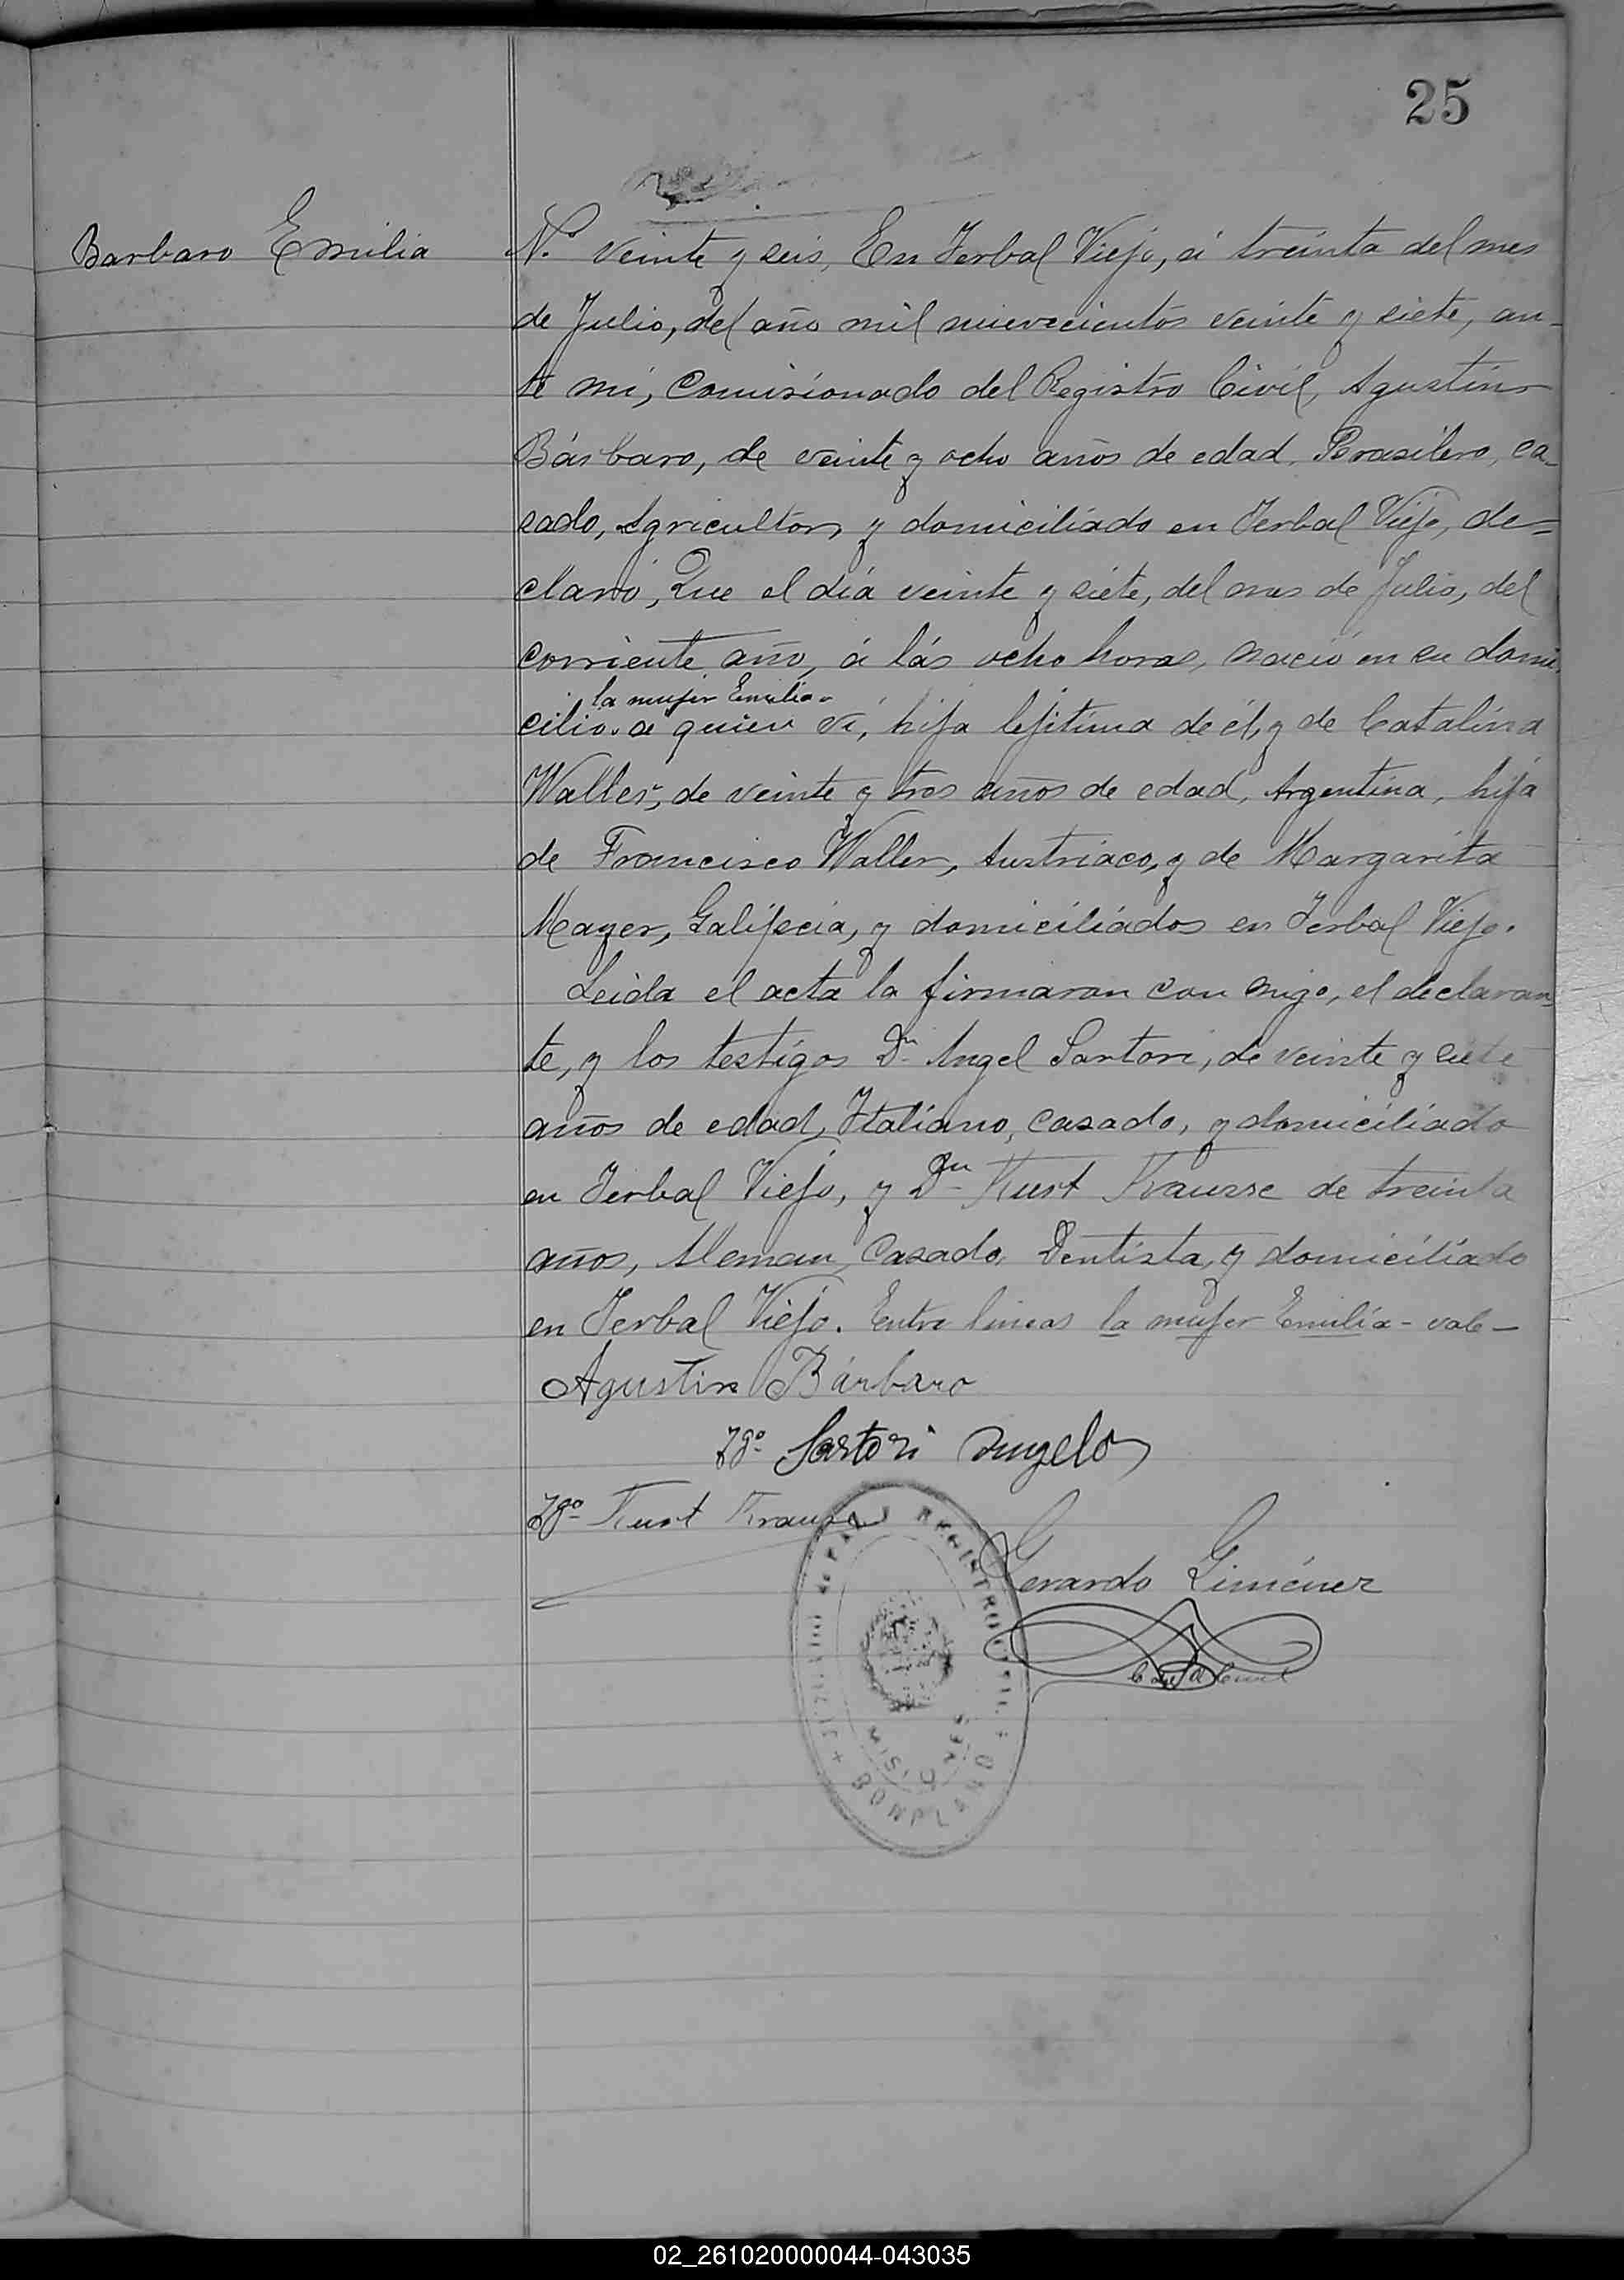 25
Barbaro Emilia
Nº veinte y seis, En Yerbal Viejo, á treinta del mes
de Julio, del año mil nuevecientos veinte y siete, an-
te mi, Comisionado del Registro Civil, Agustin
Bárbaro, de veinte y ocho años de edad, Brasilero, ca-
sado, Agricultor, y domiciliado en Yerbal Viejo, de=
claró, Que el día veinte y siete, del mes de Julio, del
corriente año, á lás ocho horas, nació en su domi
la mujer Emilia-
cilio. a quien ví, hija lejitima de él, y de Catalina
Waller, de veinte y tres años de edad, Argentina, hija
de Francisco Waller, Austriaco, y de Margarita
Mayer, y domiciliados en Yerbal Viejo.
Leida el acta la firmaran con migo, el declaran
te, y los testigos Dn Angel Sartori, de veinte y siete
años de edad, Italiano, casado, y domiciliado
en Yerbal Viejo, y Dn Kurt Krausse de treinta
años, Aleman, Casado, Dentista, y domiciliado
en Yerbal Viejo. Entre lineas la mujer Emilia - vale -
Agustin Bárbaro
Tgo. Sartori Angelo
Tgo. Kurt Krause
Gerardo Giménez
REGISTRO CIVIL + BONPLAND +
MISIONES
02_261020000044-043035